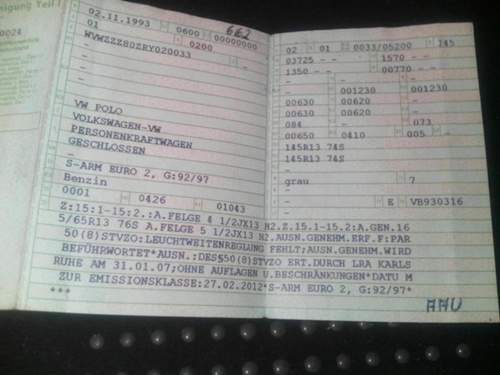 nigung Teil I
0024
02.11.1993 0600 00000000
662
01 0200
WVWZZZ80ZRY020033 -
-
VW POLO
VOLKSWAGEN-VW
PERSONENKRAFTWAGEN
GESCHLOSSEN
-
S-ARM EURO 2, G:92/97
Benzin
0001 0426 01043
02 01 0033/05200 145
03725 - - 1570 - -
1350 - - 00770 - -
- - -
- 001230 001230
00630 00620 -
00630 00620 -
084 - 073
00650 0410 005 -
145R13 74S
145R13 74S
-
grau 7
- -
- E VB930316
Z:15:1-15:2.:A.FELGE 4 1/2JX13 H2.Z.15.1-15.2:A.GEN.16
5/65R13 76S A.FELGE 5 1/2JX13 H2.AUSN.GENEHM.ERF.F:PAR
50(8)STVZO:LEUCHTWEITENREGLUNG FEHLT;AUSN.GENEHM.WIRD
BEFÜHRWORTET*AUSN.:DES§50(8)STVZO ERT.DURCH LRA KARLS
RUHE AM 31.01.07;OHNE AUFLAGEN U.BESCHRÄNKUNGEN*DATU M
ZUR EMISSIONSKLASSE:27.02.2012*S-ARM EURO 2, G:92/97*
***
AAU